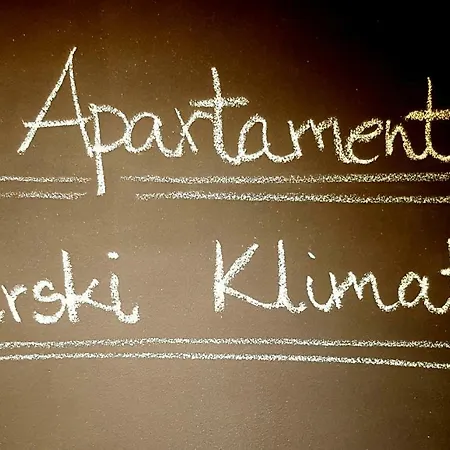 Apartament
rski Klimat